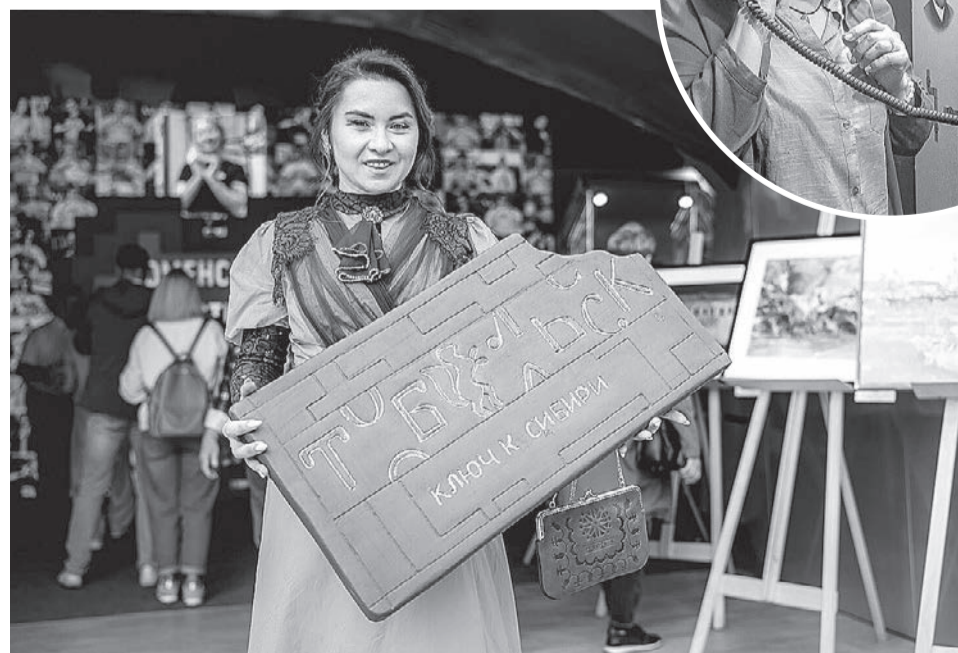 ТОБОЛЬСК
КЛЮЧ К СИБИРИ